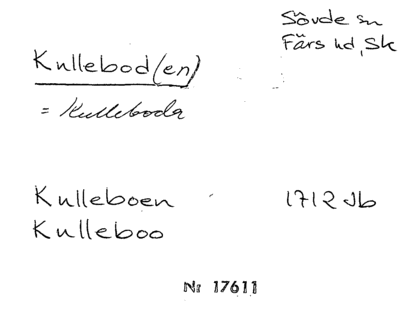 Sövde sn
Färs hd, Sk
Kullebod(en)
= Kulleboda
Kulleboen 1712 Jb
Kulleboo
Nr 17611